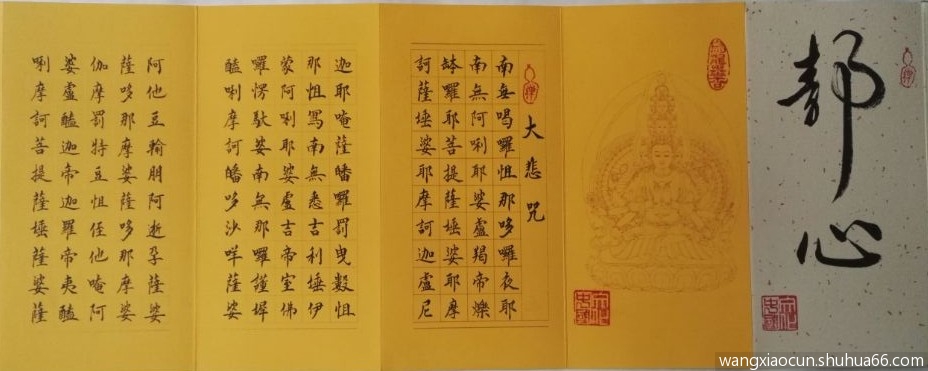 静心
大悲咒
南无喝囉怛那哆囉夜耶
南無阿唎耶婆盧羯帝爍
缽囉耶菩提薩埵婆耶摩
訶薩埵婆耶摩訶迦盧尼
迦耶唵薩皤囉罰曳數怛
那怛寫南無悉吉利埵伊
蒙阿唎耶婆盧吉帝室佛
囉愣馱婆南無那囉謹墀
醯唎摩訶皤哆沙咩薩婆
阿他豆輸朋阿逝孕薩婆
薩哆那摩婆薩哆那摩婆
伽摩罰特豆怛侄他唵阿
婆盧醯迦帝迦羅帝夷醯
唎摩訶菩提薩埵薩婆薩
wangxiaocun.shuhua66.com